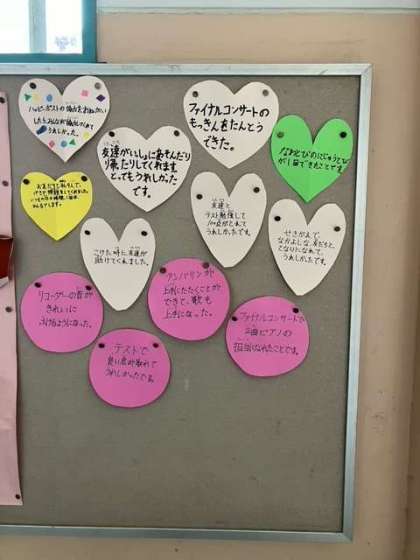 ハッピーポストの
うれしかった。
友達がいっしょにあそんだり
帰ったりしてくれます。
とってもうれしかった
です。
ファイナルコンサートの
もっきんをたんとう
できた。
なわとびのにじゅうとび
が1回できたことです。
こけた時に友達が
助けてくれました。
友達と
テスト勉強して
100点がとれて
うれしかったです。
せきがえで、
なかよしな、友だちと
となりになれて、
うれしかったです。
リコーダーの音が
きれいに
ふけるようになった。
タンバリンが
上手にたたくことが
できて、歌も
上手になった。
ファイナルコンサートで
ピアノの
担当になれたことです。
テストで
良い点が取れて
うれしかったです。